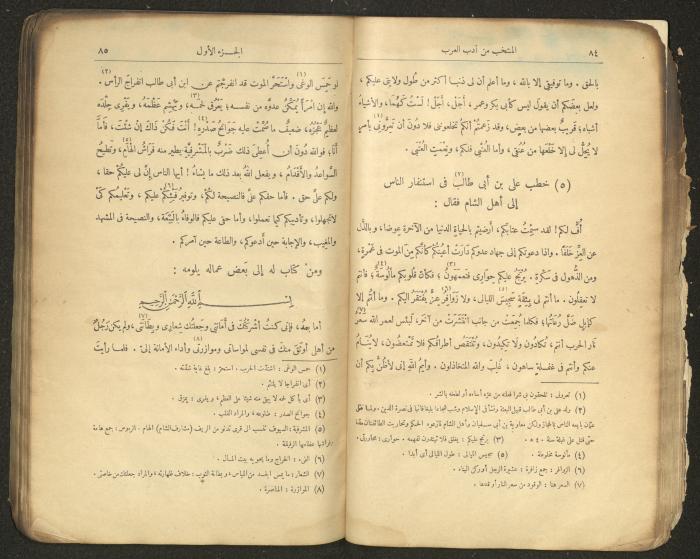 ٨٤
المنتخب من أدب العرب
بالحق . وما توفيقى إلا بالله ، وما أعلم أن لى ذنبا أكثر من طول ولايتى عليكم ،
ولعل بعضكم أن يقول ليس كأبى بكر وعمر ، أجل ، أجل ! لست كهما، والأشياء
أشباه؛ قريبٌ بعضها من بعض، وقد زعمتم أنكم تخلعوننى فلا دون أن
لا يحل لى إلا خلعها من عنقى، وأما العتبى فلكم، ونعمت العتبى .
(٥) خطب على بن أبى طالب (٢) فى استنفار الناس
إلى أهل الشام فقال :
أفّ لكم! لقد سئمتُ عتابكم، أرضيتم بالحياة الدنيا من الآخرة عوضا، وبالذل
عن العزّ خلَفًا. واذا دعوتكم إلى جهاد عدوكم دارت أعينكم كأنكم من الموت فى غمرة،
ومن الذهول فى سكرة. يُرتَج عليكم حوارى (٣) فتعمهون؛ فكأن قلوبكم مألوسة (٤)؛ فانتم
لا تعقلون. ما أنتم لى بثقة سجيسَ (٥) الليالى، ولا زوافرُ (٦) عزّ يفتقر اليكم . وما أنتم إلا
كابل ضلّ رعاتها؛ فكلما جمعت من جانب انتشرت من آخر، لبئس لعمر الله سعر (٧)
نار الحرب أنتم، تُكادون ولا تكيدون، وتنتقص أطرافكم فلا تمتعضون، لا ينام
عنكم وأنتم فى غفلة ساهون، غلب والله المتخاذلون. وأيم الله إنى لأظن بكم أن
(٢) ولد على بن أبى طالب قبيل البعثة ونشأ فى الاسلام
حتى قتل على غيلة سنة ٤٠ ه . (٣) يرتج عليكم : يغلق فلا تهتدون لفهمه . حوارى : محاورتى .
(٤) مألوسة مخلوطة . (٥) سجيس الليالى : طول الليالى أى أبدا .
(٦) الزوافر : جمع زافرة : عشيرة الرجل أو ركن البناء .
(٧) السعر هنا : الوقود من سعر النار أوقدها .
الجزء الأول
٨٥
لو حَمِسَ الوغى (١) واستحَرّ الموت قد انفرجتم عن ابن أبى طالب انفراجَ الرأس (٢).
والله إن امرأ يمكّن عدوّه من نفسه ؛ يعرُق لحمه (٣)، ويهشِم عظمه، ويفرى جلده
لعظيم عجزه، ضعيفٌ ما ضُمّت عليه جوانح صدره (٤)! أنت فكن ذاك إن شئت، فأما
أنا؛ فوالله دون أن أعطى ذلك ضربٌ بالمشرفية (٥) تطير منه فَراش الهام، وتطيح
السواعد والأقدام، ويفعل الله بعد ذلك ما يشاء! أيها الناس إن لى عليكم حقا،
ولكم علىّ حق . فاما حقكم علىّ فالنصيحة لكم، وتوفير فيئكم (٦) عليكم ، وتعليمكم كى
لا تجهلوا، وتأديبكم كيما تعملوا، وأما حقى عليكم فالوفاء بالبيعة، والنصيحة فى المشهد
والمغيب، والإجابة حين أدعوكم، والطاعة حين آمركم .
ومن كتاب له إلى بعض عماله يلومه :
بسم الله الرحمن الرحيم
أما بعد، فإنى كنت أشركتك فى أمانتى وجعلتك شعارى وبطانتى (٧)، ولم يكن رجلٌ
من أهلى أوثقَ منك فى نفسى لمواساتى وموازرتى (٨) وأداء الأمانة إلىّ . فلما رأيت
(١) حمس الوغى : اشتدت الحرب . استحر : بلغ غاية شدته .
(٢) أى انفراجا لا يلتئم .
(٣) أى يأكل لحمه لا يبقى منه شيئا على العظم، ويفرى : يمزق .
(٤) جوانح الصدر : ضلوعه، والمراد القلب .
(٦) الفىء : الخراج وما يحويه بيت المال .
(٧) الشعار : ما يمس الجسد من اللباس، وبطانة الثوب : خلاف ظهارته، والمراد جعلتك من خاصتى .
(٨) الموازرة : المناصرة .